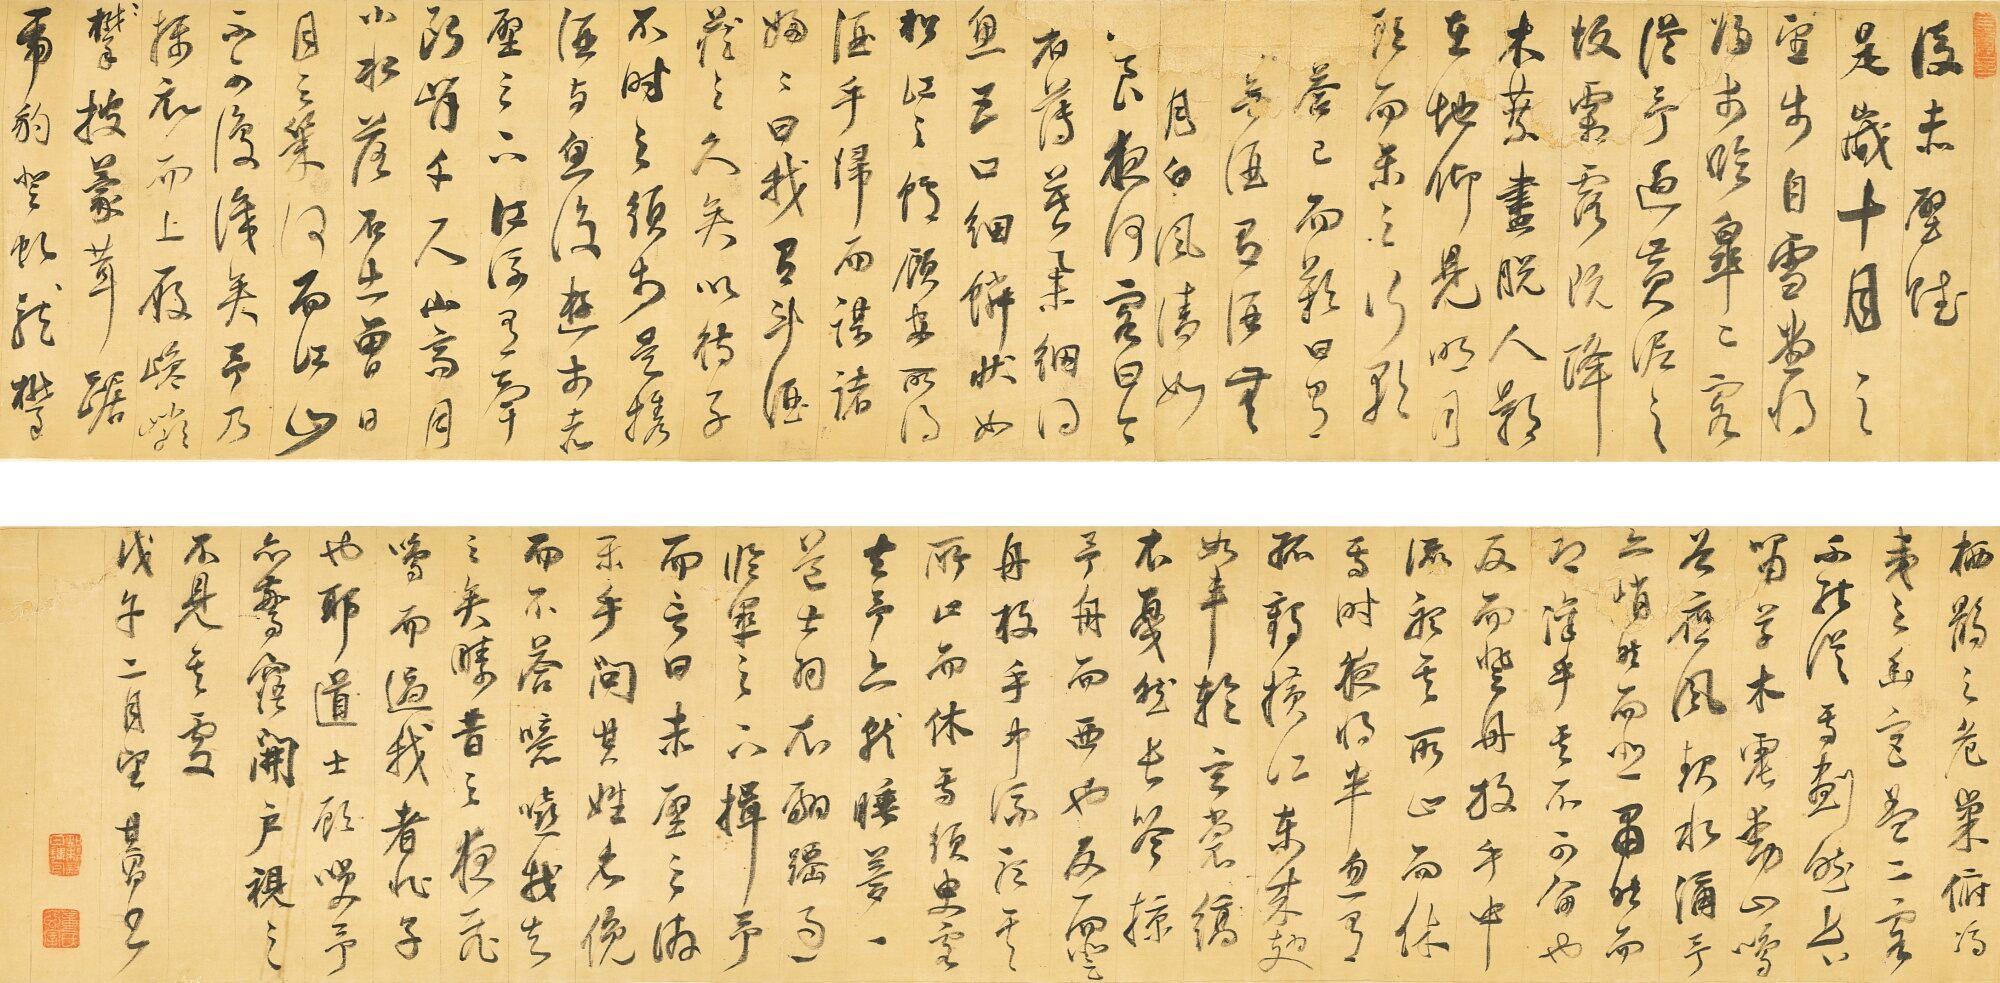 後赤壁賦
是歲十月之
望步自雪堂將
歸於臨皋二客
從予過黃泥之
坂霜露既降
木葉盡脫人影
在地仰見明月
顧而樂之行歌
答已而歎曰有
無酒有酒無
月白風清如
良夜何客曰今
者薄暮舉網得
魚巨口細鱗狀如
松江之鱸顧安所得
酒乎歸而謀諸
婦〻曰我有斗酒
藏之久矣以待子
不時之須於是攜
酒與魚復遊於赤
壁之下江流有聲
斷岸千尺山高月
小水落石出曾日
月之幾何而江山
不可復識矣予乃
攝衣而上履巉巖
攀披蒙茸踞
虎豹登虬龍攀
栖鶻之危巢俯馮
夷之幽宮蓋二客
不能從焉劃然長
嘯草木震動山鳴
谷應風起水涌予
亦悄然而悲肅然而
恐凜乎其不可留也
反而登舟放乎中
流聽其所止而休
焉時夜將半忽有
孤鶴橫江東來翅
如車輪玄裳縞
衣戛然長鳴掠
予舟而西也反而登
舟放乎中流聽其
所止而休焉須臾客
去予亦就睡夢一
道士羽衣翩躚過
臨皋之下揖予
而言曰赤壁之遊
樂乎問其姓名俛
而不答噫嘻我知
之矣疇昔之夜飛
鳴而過我者非子
也耶道士顧笑予
亦驚寤開戶視之
不見其處
戊午二月望其昌書